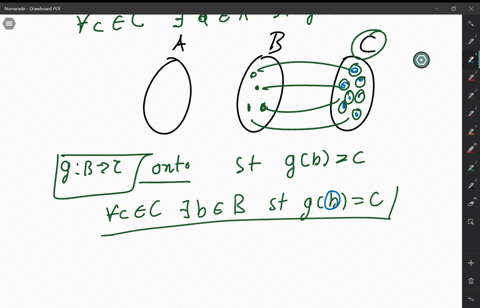 Numerade - Drawboard PDF
∀c∈C ∃ a∈A st g
A B C
g:B→C onto st g(b)=C
∀c∈C ∃b∈B st g(b)=C